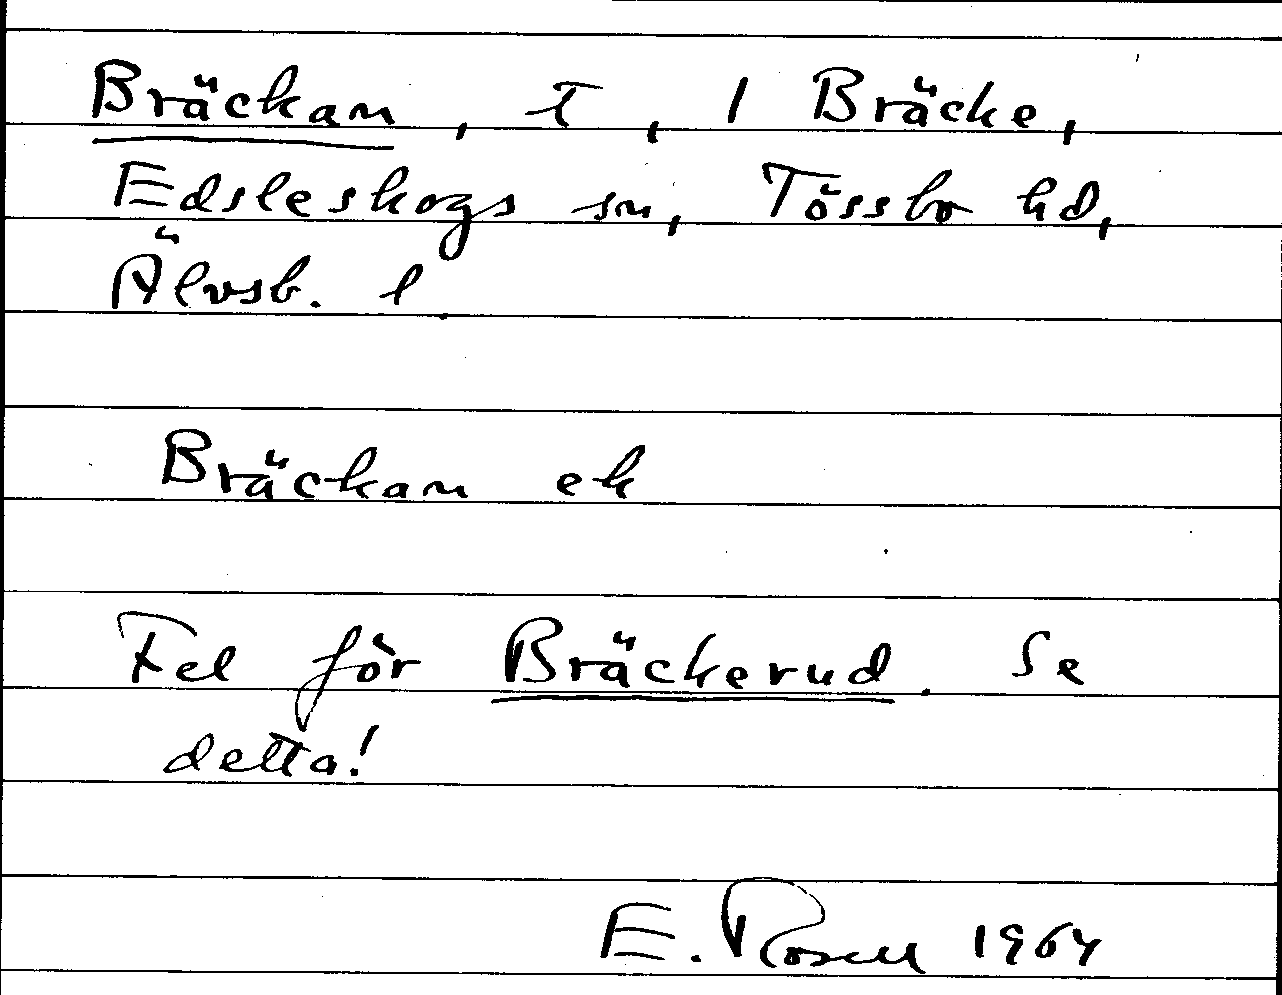 Bräckan, T, 1 Bräcke,
Edsleskogs sn, Tössbo hd,
Älvsb. l.
Bräckan ek
Fel för Bräckerud. Se
detta!
E. Rosell 1964